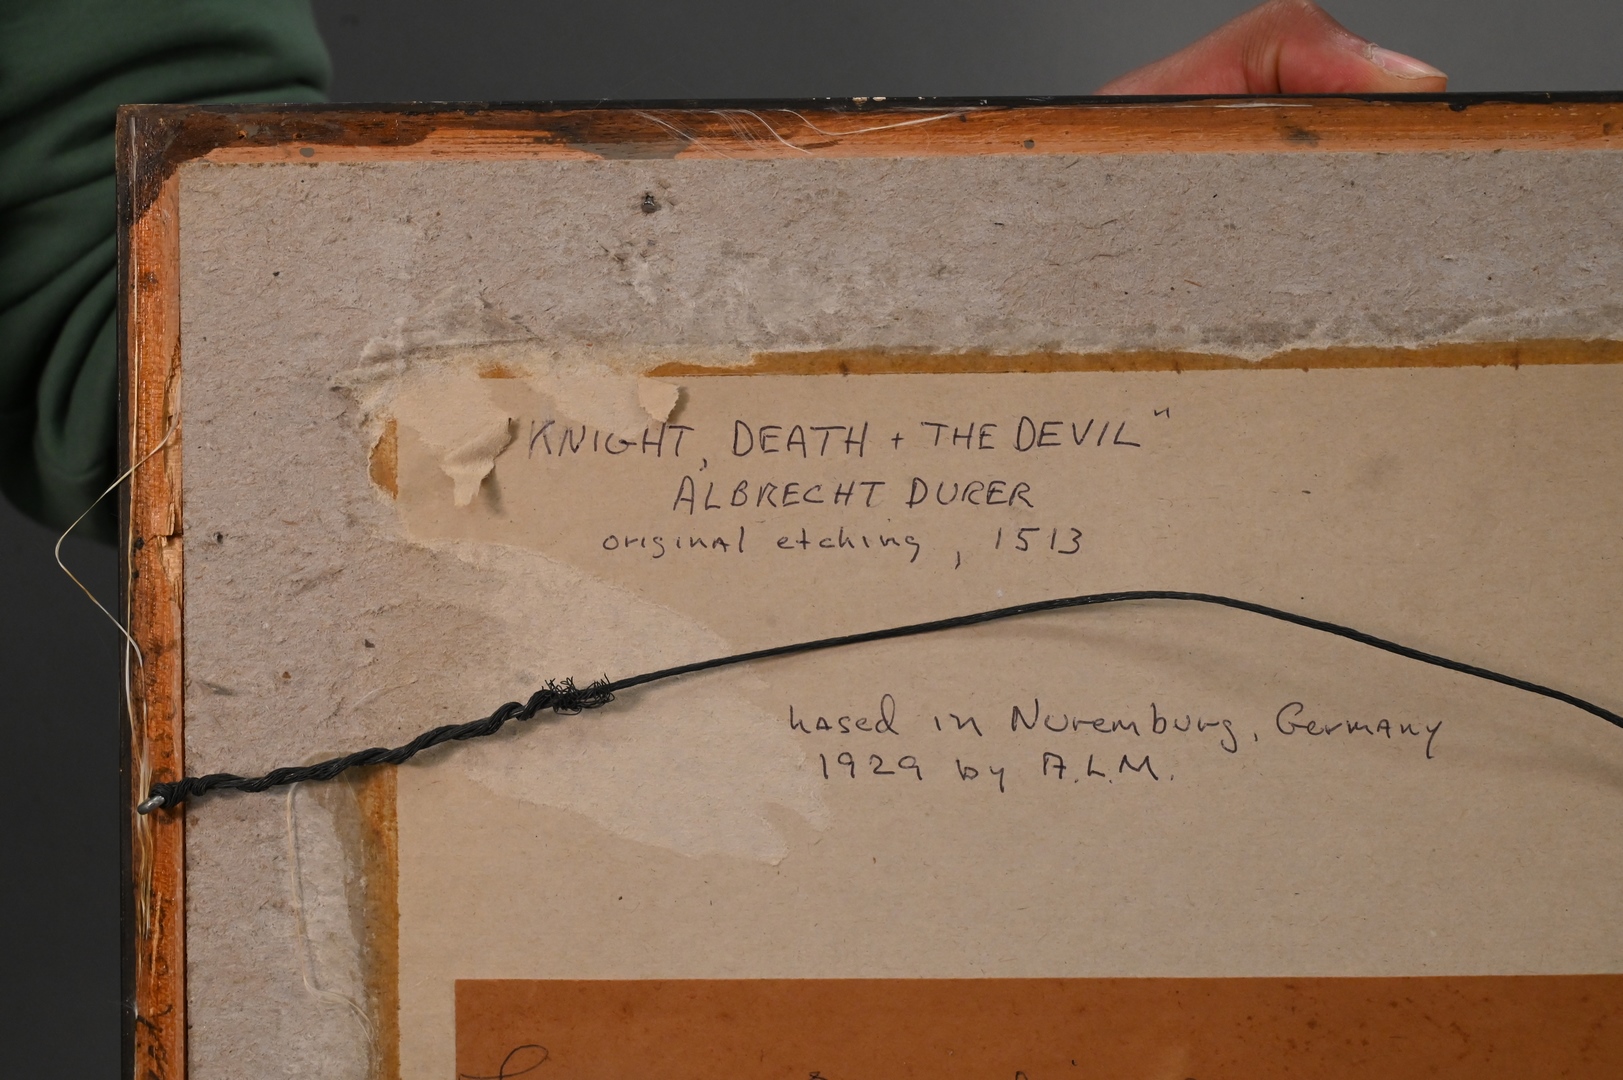 "KNIGHT, DEATH + THE DEVIL"
ALBRECHT DURER
original etching, 1513
hased in Nuremburg, Germany
1929 by A.L.M.